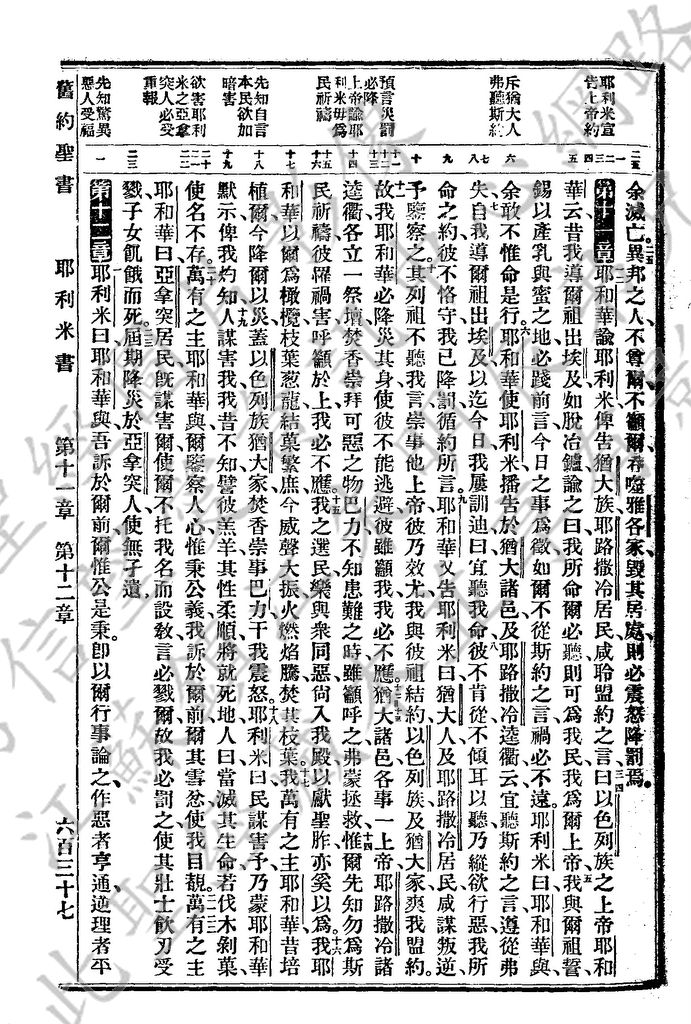 耶利米宣告上帝約
斥猶大人弗聽斯約
預言災罰必降
上帝諭耶利米毋爲民祈禱
先知自言本民欲加暗害
欲害耶利米之亞拿突人必受重報
先知驚異惡人受福
余滅亡異邦之人不尊爾不籲爾吞噬雅各家毀其居處則必震怒降罰焉
第十一章耶和華諭耶利米俾告猶大族耶路撒冷居民咸聆盟約之言曰以色列族之上帝耶和
華云昔我導爾祖出埃及如脫冶鑪諭之曰我所命爾必聽則可爲我民我爲爾上帝我與爾祖誓
錫以產乳與蜜之地必踐前言今日之事爲徵如爾不從斯約之言禍必不遠耶利米曰耶和華與
余敢不惟命是行耶和華使耶利米播告於猶大諸邑及耶路撒冷逵衢云宜聽斯約之言遵從弗
失自我導爾祖出埃及以迄今日我屢訓迪曰宜聽我命彼不肯從不傾耳以聽乃縱欲行惡我所
命之約彼不恪守我已降罰循約所言耶和華又告耶利米曰猶大人及耶路撒冷居民咸謀叛逆
予鑒察之其列祖不聽我言崇事他上帝彼乃效尤我與彼祖結約以色列族及猶大家爽我盟約
故我耶和華必降災其身使彼不能逃避彼雖籲我我必不應猶大諸邑各事一上帝耶路撒冷諸
逵衢各立一祭壇焚香崇拜可惡之物巴力不知患難之時雖籲呼之弗蒙拯救惟爾先知勿爲斯
民祈禱彼罹禍害呼籲於上我必不應我之選民樂與衆同惡尙入我殿以獻聖胙亦奚以爲我耶
和華以爾爲橄欖枝葉葱蘢結菓繁庶今威聲大振火燃焰騰焚其枝葉我萬有之主耶和華昔培
植爾今降爾以災蓋以色列族猶大家焚香崇事巴力干我震怒耶利米曰民謀害予乃蒙耶和華
默示俾我灼知人謀害我我昔不知譬彼羔羊其性柔順將就死地人曰當滅其生命若伐木剝菓
使名不存萬有之主耶和華與爾鑒察人心惟秉公義我訴於爾前爾其雪忿使我目覩萬有之主
耶和華曰亞拿突居民旣謀害爾使爾不托我名而設敎言必戮爾故我必罰之使其壯士飲刃受
戮子女飢餓而死屆期降災於亞拿突人使無孑遺
第十二章耶利米曰耶和華與吾訴於爾前爾惟公是秉卽以爾行事論之作惡者亨通逆理者平
舊約聖書 耶利米書 第十一章 第十二章 六百三十七